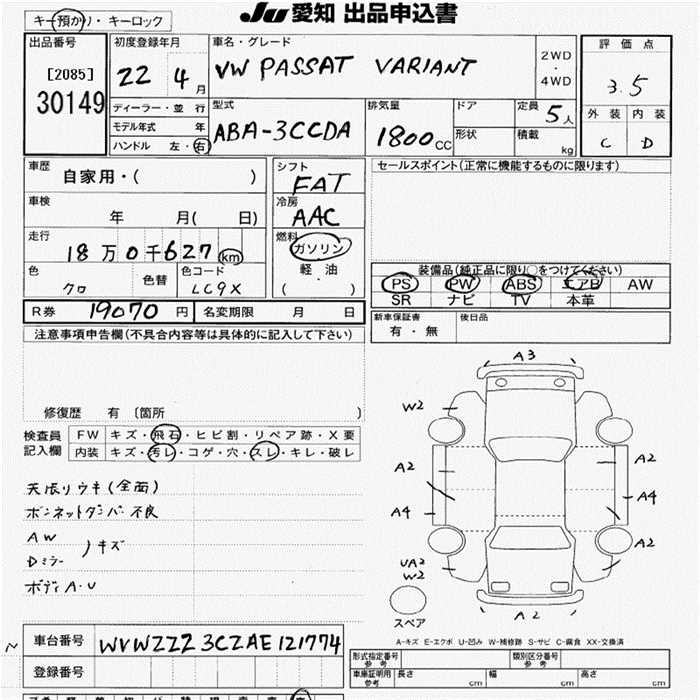 JU 愛知 出品申込書
キー預かり・キーロック
出品番号
[2085]
30149
初度登録年月
22 4月
車名・グレード
VW PASSAT VARIANT
2WD
・
4WD
評価点
3.5
外装 内装
C D
ディーラー・並行
モデル年式 年
ハンドル 左・右
型式
ABA-3CCDA
排気量
1800CC
ドア
形状
定員 5人
積載 kg
車歴
自家用・( )
車検
年 月( 日)
走行
18万0千627km
色
クロ
色替
色コード
LC9X
シフト
FAT
冷房
AAC
燃料
ガソリン
軽・油
( )
セールスポイント(正常に機能するものに限ります)
装備品(純正品に限り○をつけてください)
PS PW ABS エアB AW
SR ナビ TV 本革
R券 19070円 名変期限 月 日
新車保証書
有・無
後日品
注意事項申告欄(不具合内容等は具体的に記入して下さい)
修復歴 有 〔箇所 〕
検査員
記入欄
FW キズ・飛石・ヒビ割・リペア跡・X要
内装 キズ・汚レ・コゲ・穴・スレ・キレ・破レ
天張リウキ(全面)
ボンネットダンパー不良
AW
Dミラー
) キズ
ボディA・U
A3
W2
A2
A4
UA2
W2
A2
A4
A2
A2
スペア
A-キズ E-エクボ U-凹み W-補修跡 S-サビ C-腐食 XX-交換済
車台番号 WVWZZZ3CZAE121774
登録番号
形式指定番号
参考
類別区分番号
参考
車庫証明用
参考
長さ cm 幅 cm 高さ cm